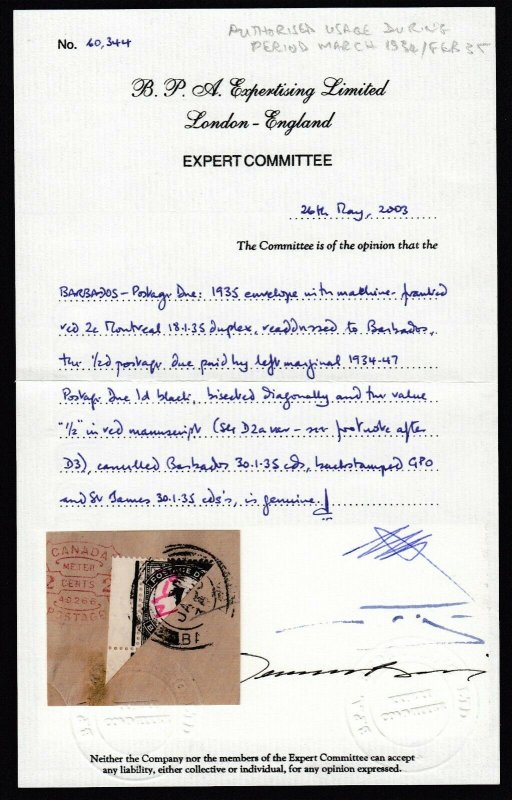 AUTHORISED USAGE DURING
PERIOD MARCH 1934/FEB 35
No. 60,344
B. P. A. Expertising Limited
London - England
EXPERT COMMITTEE
26th May, 2003
The Committee is of the opinion that the
BARBADOS - Postage Due: 1935 envelope with machine-franked
red 2c Montreal 18.1.35 duplex, readdressed to Barbados,
the ½d postage due paid by left marginal 1934-47
Postage Due 1d black, bisected diagonally and the value
"½" in red manuscript (SG D2a var - see footnote after
D3), cancelled Barbados 30.1.35 cds, backstamped GPO
and St James 30.1.35 cds's, is genuine.
CANADA
METER
2 CENTS 2
40266
POSTAGE
POSTAGE D
Neither the Company nor the members of the Expert Committee can accept
any liability, either collective or individual, for any opinion expressed.